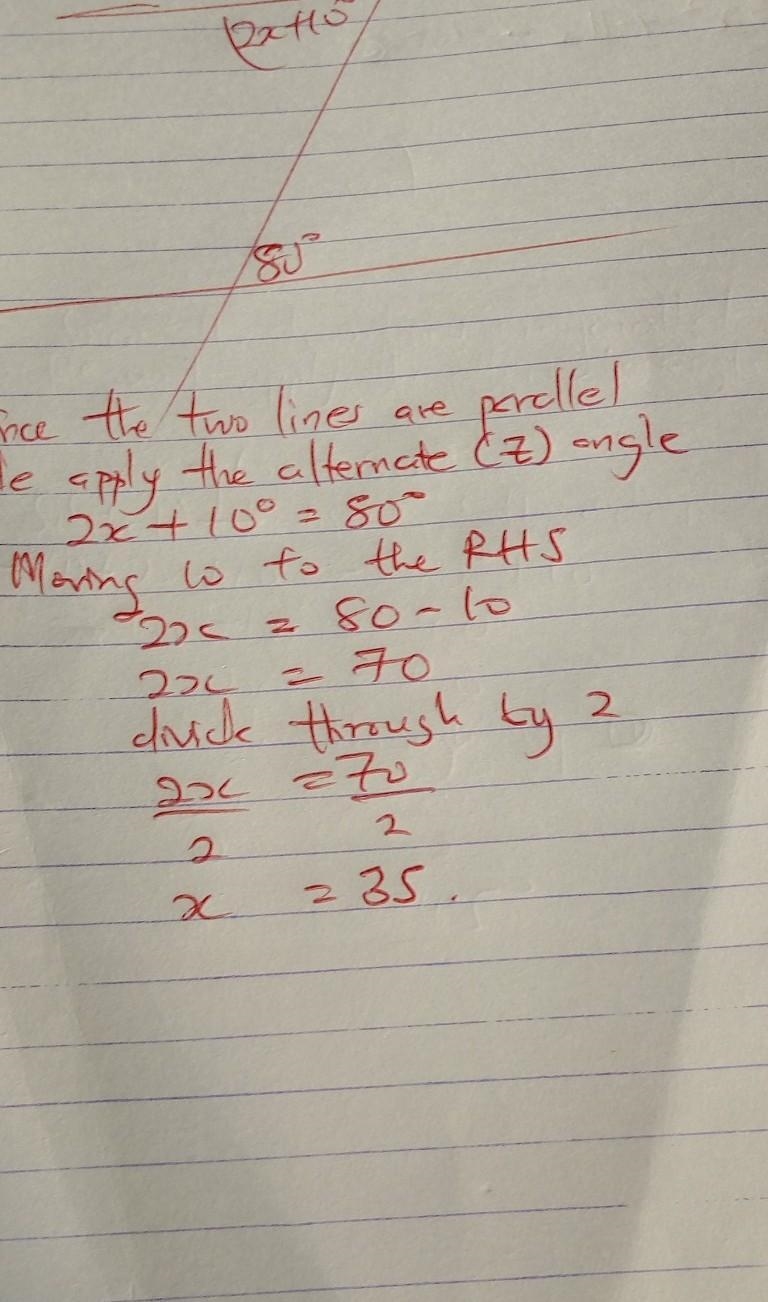 2x+10
80°
nce the two lines are parallel
le apply the alternate (Z) angle
2x + 10° = 80°
Moving 10 to the RHS
2x = 80 - 10
2x = 70
divide through by 2
2x = 70
2 2
x = 35.